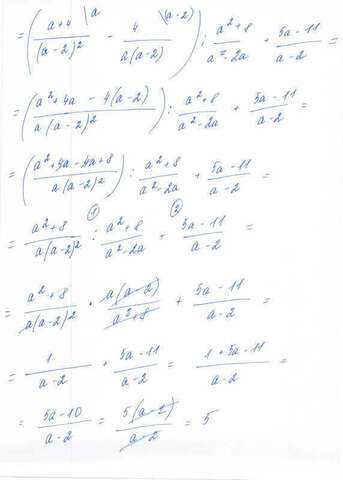 = ( (a+4)/(a-2)² \a - 4/(a(a-2)) \(a-2) ) : (a²+8)/(a²-2a) + (5a-11)/(a-2) =
= ( (a²+4a - 4(a-2))/(a(a-2)²) ) : (a²+8)/(a²-2a) + (5a-11)/(a-2) =
= ( (a²+4a-4a+8)/(a(a-2)²) ) : (a²+8)/(a²-2a) + (5a-11)/(a-2) =
= (a²+8)/(a(a-2)²) :① (a²+8)/(a²-2a) +② (5a-11)/(a-2) =
= (a²+8)/(a(a-2)²) · (a(a-2))/(a²+8) + (5a-11)/(a-2) =
= 1/(a-2) + (5a-11)/(a-2) = (1+5a-11)/(a-2) =
= (5a-10)/(a-2) = (5(a-2))/(a-2) = 5